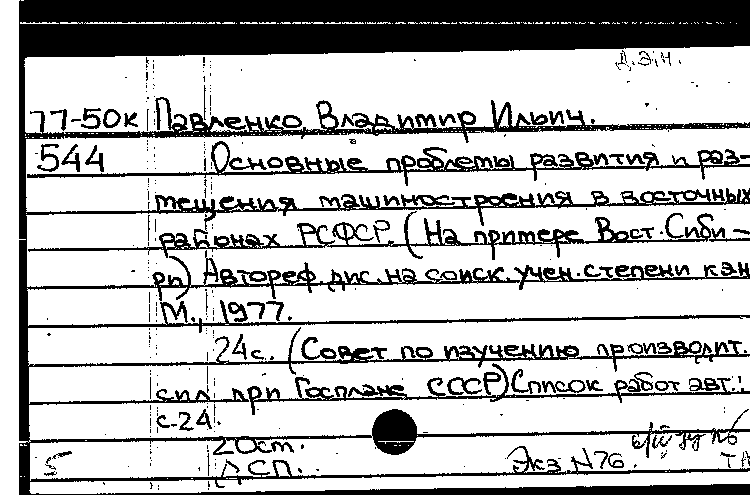 Д.Э.Н.
77-50к Павленко, Владимир Ильич.
544 Основные проблемы развития и раз-
мещения машиностроения в восточных
районах РСФСР. (На примере Вост. Сиби-
ри) Автореф. дис. на соиск. учен. степени кан
М., 1977.
24с. (Совет по изучению производит.
сил при Госплане СССР) Список работ авт.:
с. 24.
20ст.
5 ДСП. Экз N76.